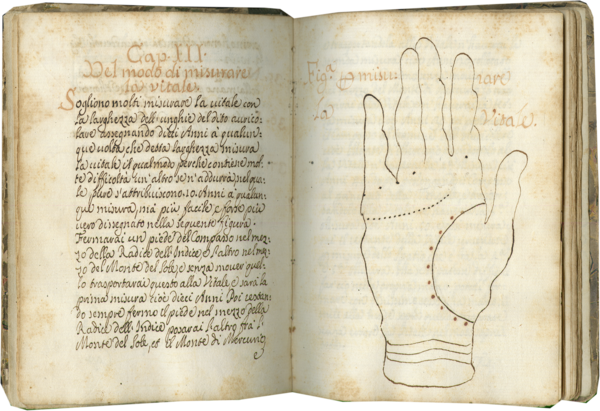 Cap. III.
Del modo di misurare
la vitale.
Sogliono molti misurare la vitale con
la larghezza dell'unghie del dito aurico-
lare assegnando dieci Anni à qualun-
que volta che detta larghezza misura
la vitale il qual modo perche contiene mol-
te difficoltà un'altro se n'addurrà nel qua-
le pure s'attribuiscono 10. Anni à qualun-
que misura, mà più facile e forse più
vero disegnato nella seguente figura.
Fermarai un piede del Compasso nel mez-
zo della Radice dell'Indice e l'altro nel mez-
zo del Monte del Sole, e senza mover quel-
lo trasportarai questo alla Vitale e sarà la
prima misura cioè dieci Anni Poi tenen-
do sempre fermo il piede nel mezzo della
Radice dell'Indice posarai l'altro frà 'l
Monte del Sole, et il Monte di Mercurio
e
Fig.ª misu rare
la Vitale.